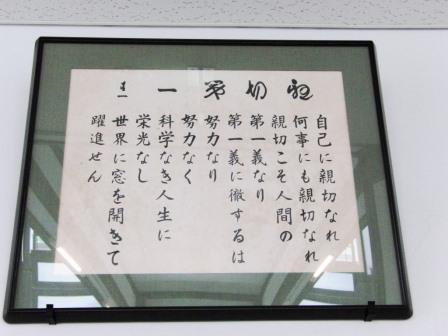 親切第一
自己に親切なれ
何事にも親切なれ
親切こそ人間の
第一義なり
第一義に徹するは
努力なり
努力なく
科学なき人生に
栄光なし
世界に窓を開きて
躍進せん